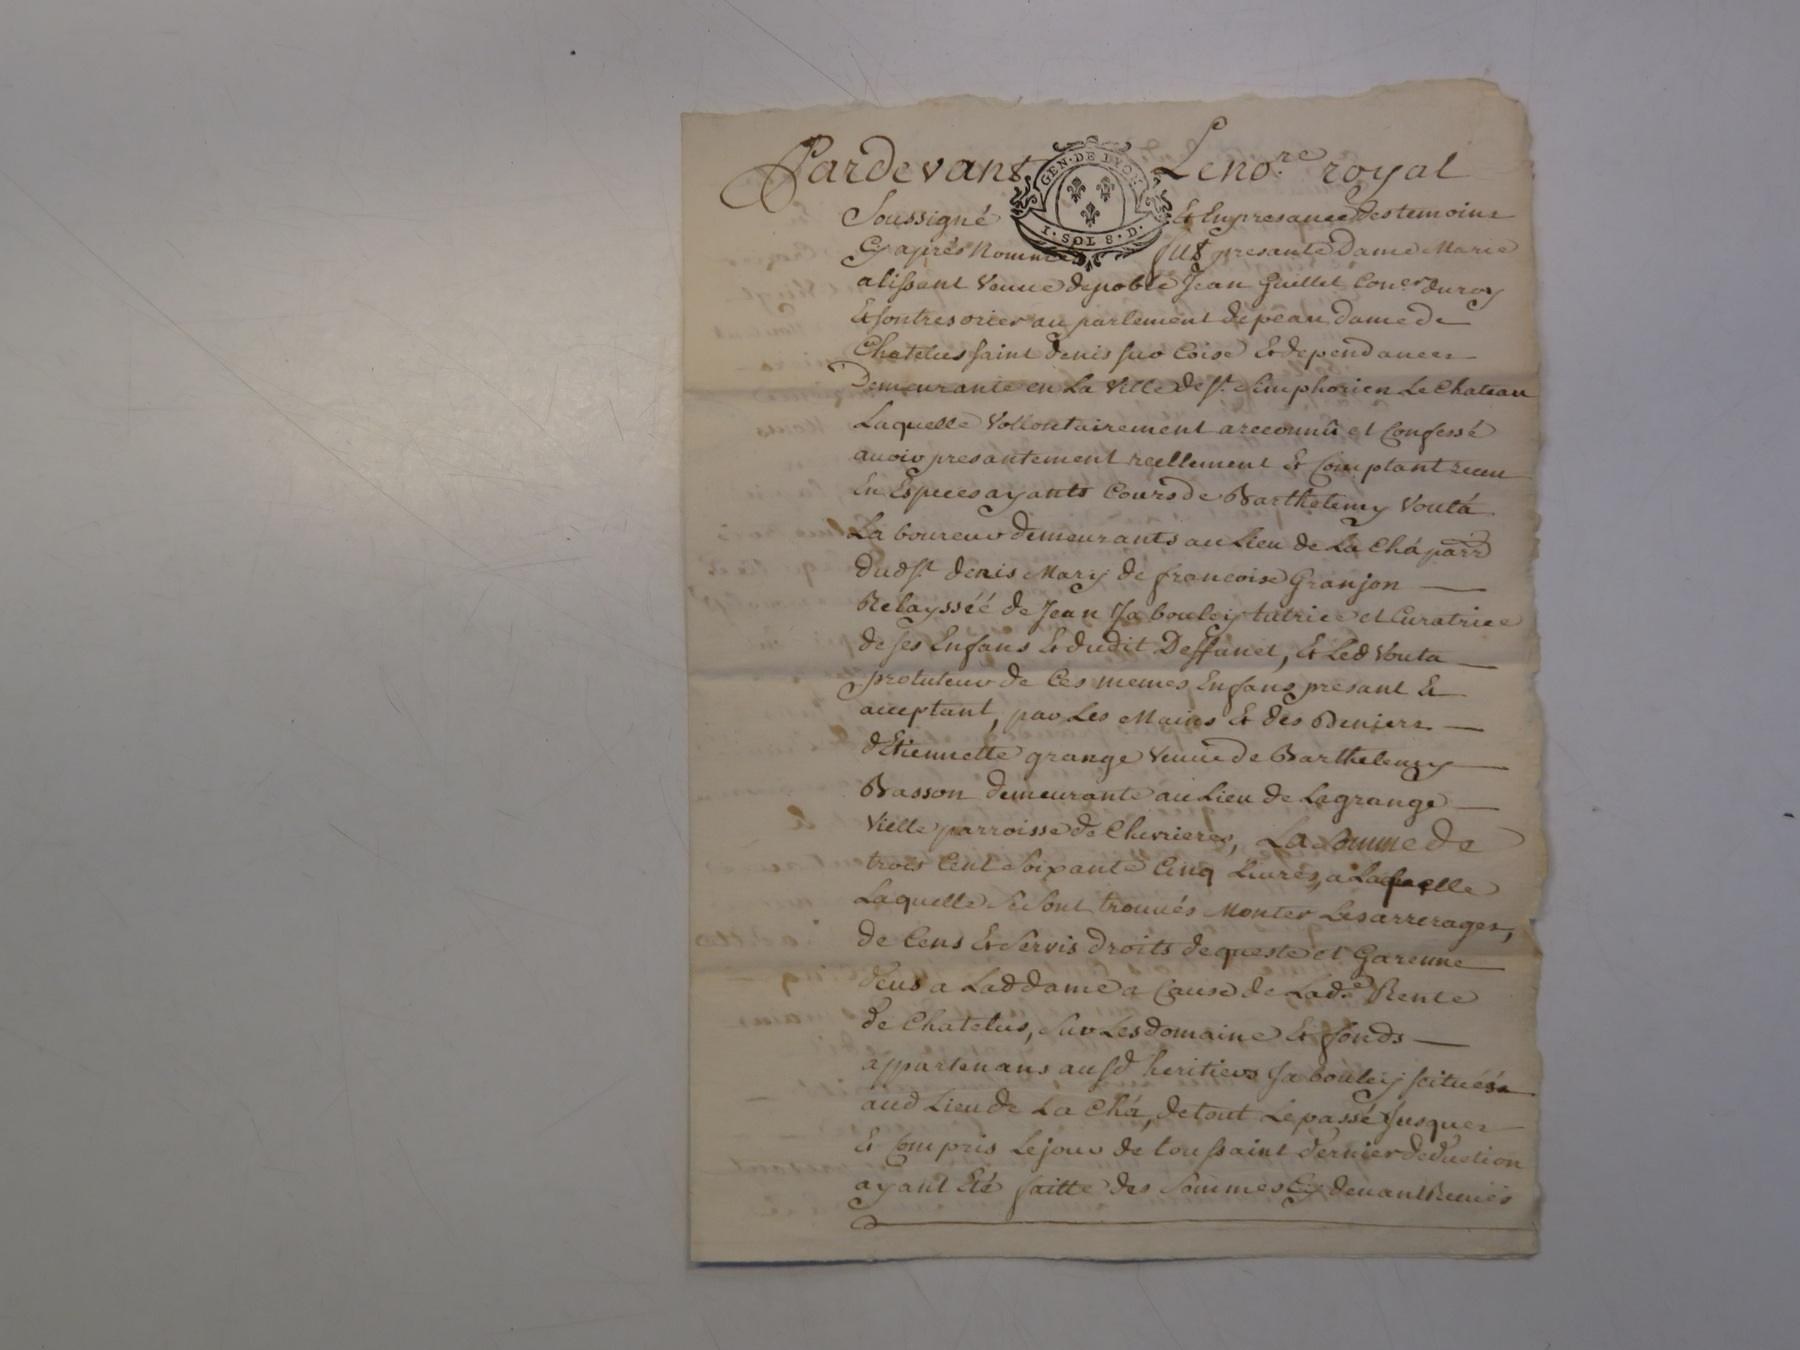 Pardevant Le no.re royal
GEN·DE LYON
I·SOL 8·D·
Soussigné Et En presance Des temoins
Cy aprés Nommés fut presante Dame Marie
alissant Veuue de noble Jean Guillet Con.er du roy
Et son tresorier au parlement de peau dame de
Chatelus saint denis sur Coise Et dependances
Demeurante en La Ville de St. Simphorien Le Chateau
Laquelle Vollontairement a reconnû et Confessé
auoir presantement reellement Et Comptant receu
En Especes ayants Cours de Barthelemy Voutá
La boureur demeurants au Lieu de La Chá parr
dud St. denis Mary de francoise Granjon
Relayssée de Jean Ja bouley tutrice et Curatrice
de ses Enfans Et dudit Deffunct, Et Led Vouta
protuteur de Ces memes Enfans presant Et
acceptant, par Les Mains Et des Deniers
d'Etiennette grange Veuue de Barthelemy
Basson demeurante au Lieu de Lagrange
Vielle parroisse de Chevrieres, La Somme de
trois Cent Soixante Cinq Liures, a Laquelle
Laquelle Se Sont trouués Monter Les arrerages,
de Cens Et Servis Droits de queste et Garenne
deus a Lad dame a Cause de Lad.e Rente
de Chatelus, Sur Les domaine Et fonds
appartenans aus d heritiers Ja bouley scitués
aud Lieu de La Chá, de tout Le passé Jusques
Et Compris Le jour de toussaint dernier deduction
ayant Eté faitte des Sommes Cy deuant